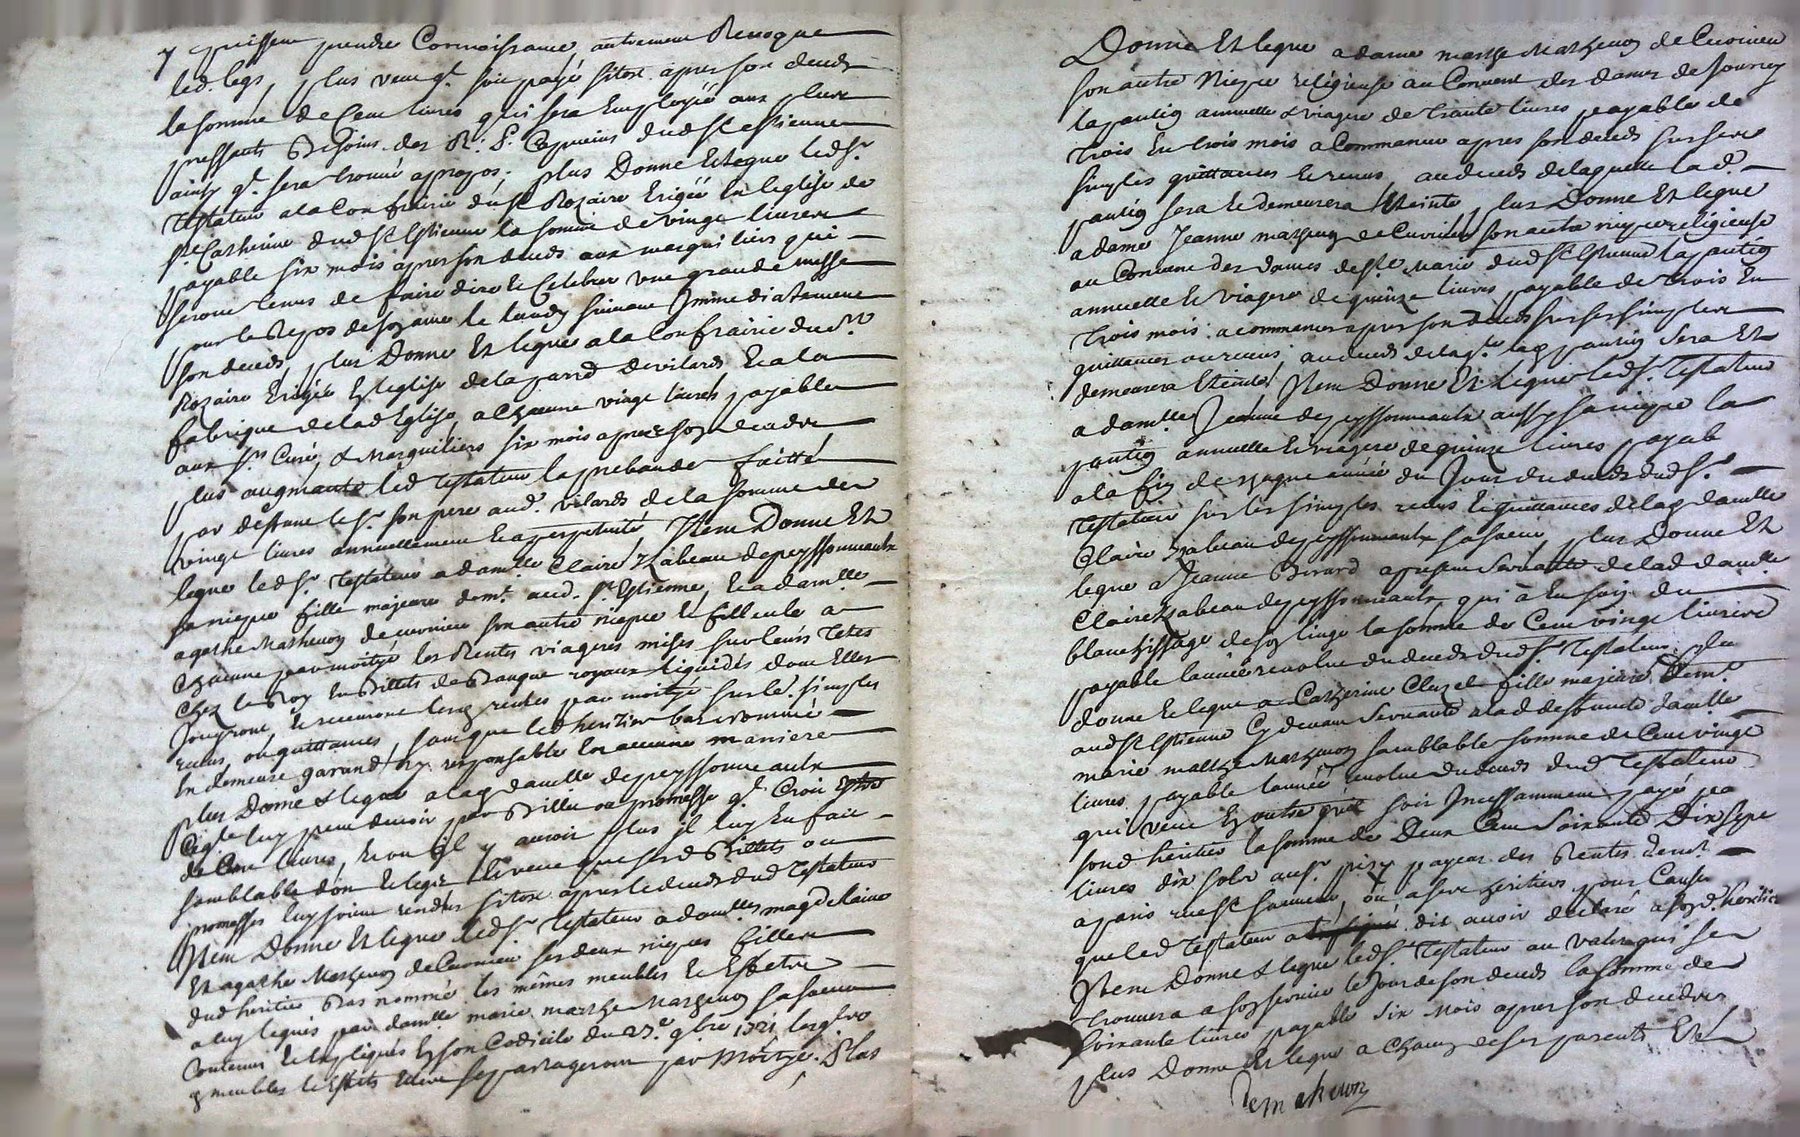 y puissent prendre Connoissance, autrement Revoque
led. legs, plus veut qt. soit payé sitost apres son deceds
la somme de Cent livres qui sera Employée aux plus
pressants Besoins des R. P. Capucins dud. St estienne
ainsy qt. sera trouvé apropos. plus Donne et legue led. Sr.
Testateur a la Confrairie du St Rozaire Erigée En leglise de
Ste Catherine dud St Estienne la somme de vingt livres
payable six mois apres son deceds aux marguilliers qui
seront tenus de faire dire et Celebrer une grande messe
pour le Repos de son ame le lundy suivant Immediatement
son deceds, plus Donne Et legue a la Confrairie du St
Rozaire Erigée En leglise de la parr. de vilards Et a la
fabrique de lad Eglise a Chacune vingt livres payables
aux Srs Curé, & Marguilliers six mois apres son deceds
plus augmante led Testateur la prebande faitte
par deffunt le Sr. son pere aud. vilards de la somme de
vingt livres annuellement Et a perpetuité Item Donne Et
legue led Sr. Testateur a damlle Claire Izabeau depeyssonneaulx
sa niepce fille majeure demt. aud. St Estienne, Et a damlle
agathe Mathevon de curnieu son autre niepce Et filleule a
Chacune par moityé les Rentes viageres mises sur leurs Tetes
Chez le Roy En Billets de Banque royaux liquidés dont Elles
Jouyront Et recevront lesq rentes par moityé sur le. simples
recus, ou quittances, sans que led heritier bas nommé
En demeure garand ny responsable En aucune maniere
plus Donne & legue a laq damlle depeyssonneaulx
Ce qt luy peut devoir par Billet ou promesse qt. Croit estre
de Cent livres, Et ou il y auroit plus il luy En fait
semblable don Et legs, Et veut que lesd Billets ou
promesses luy soient rendus sitost apres le deceds dud Testateur
Item Donne Et legue led Sr Testateur a damlles magdelaine
Et agathe Mathevon de Curnieu ses deux niepces filles
dud heritier Bas nommé les mêmes meubles Et Effets
a luy legués par damlle marie marthe Mathevon sa soeur
Contenus Et Expliqués En son Codicile du 27e. 9bre 1721 lesqls
meubles Et Effets Elles se partageront par Moityé. Plus
Donne Et legue a dame marthe Mathevon de Curnieu
son autre Niepce religieuse au Convent des dames de Jourcey
la pantion annuelle & viagere de trante livres payable de
trois En trois mois a Commancer apres son deceds sur ses
simples quittances Et recus, au deceds de laquelle lad.
pantion sera Et demeurera Eteinte, plus Donne Et legue
a dame Jeanne mathevon de Curnieu son autre niepce religieuse
au Convent des dames de Ste Marie dud St Estienne la pantion
annuelle Et viagere de quinze livres payable de trois En
trois mois a commancer apres son deceds sur ses simples
quittances ou recus, au deceds de laqe. laq pantion sera Et
demeurera Eteinte! Item Donne Et legue led Sr. Testateur
a damlle Jeanne depeyssonneaulx aussy sa niepce la
pantion annuelle Et viagere de quinze livres payab
a la fin de chaque année du Jour du deceds dud Sr.
Testateur sur les simples recus Et quittances de laq damlle
Claire Izabeau depeyssonneaulx sa soeur, plus Donne Et
legue a Jeanne Birard a present Servante de lad damlle
Claire Izabeau depeyssonneaulx qui à Eu soin du
blanchissage de son linge la somme de Cent vingt livres
payable lannée revolue du deceds dud Sr Testateur, plus
donne Et legue a Catherine Cluzel fille majeure Demt.
aud St Estienne Cy devant Servante a lad deffunte damlle
marie marthe Mathevon semblable somme de Cent vingt
livres payable lannée revolue du deceds dud Testateur
qui veut En outre qu'il soit Incessamment payé pa
sond heritier la somme de Deux Cent Soixante Dix sept
livres dix sols au Sr. payeur des Rentes demt.
a paris rue St sauveur, ou a ses heritiers, pour Cause
que led Testateur a dit avoir declaré a sond. heritier
Item Donne & legue led Sr Testateur au valet qui se
trouvera a son service le Jour de son deceds la somme de
Soixante livres payable Six mois apres son deceds
plus Donne Et legue a Chacun de ses parents Et
Demathevon